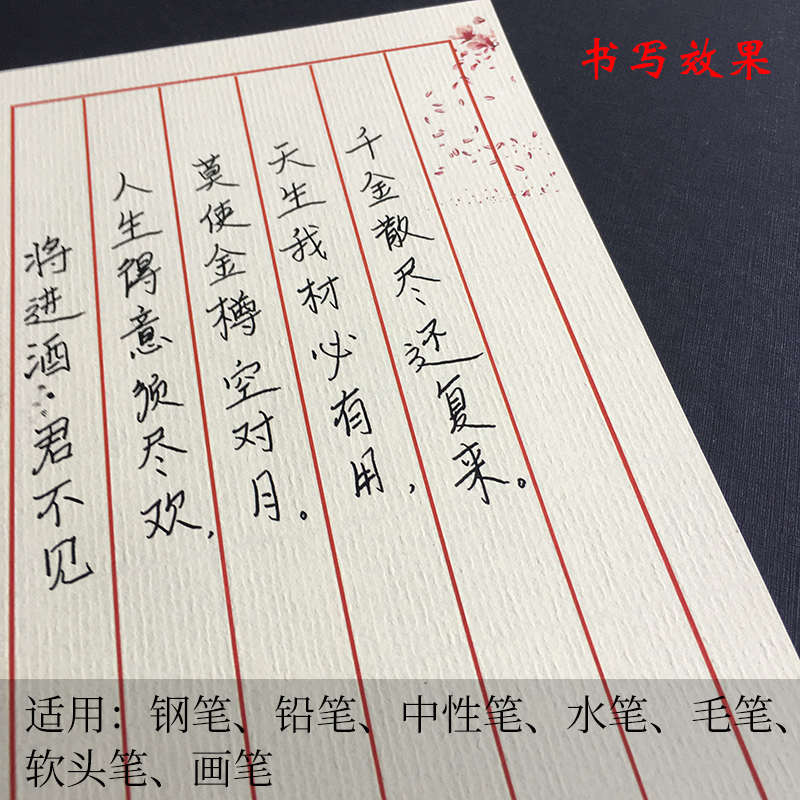 书写效果
将进酒：君不见
人生得意须尽欢，
莫使金樽空对月。
天生我材必有用，
千金散尽还复来。
适用：钢笔、铅笔、中性笔、水笔、毛笔、
软头笔、画笔